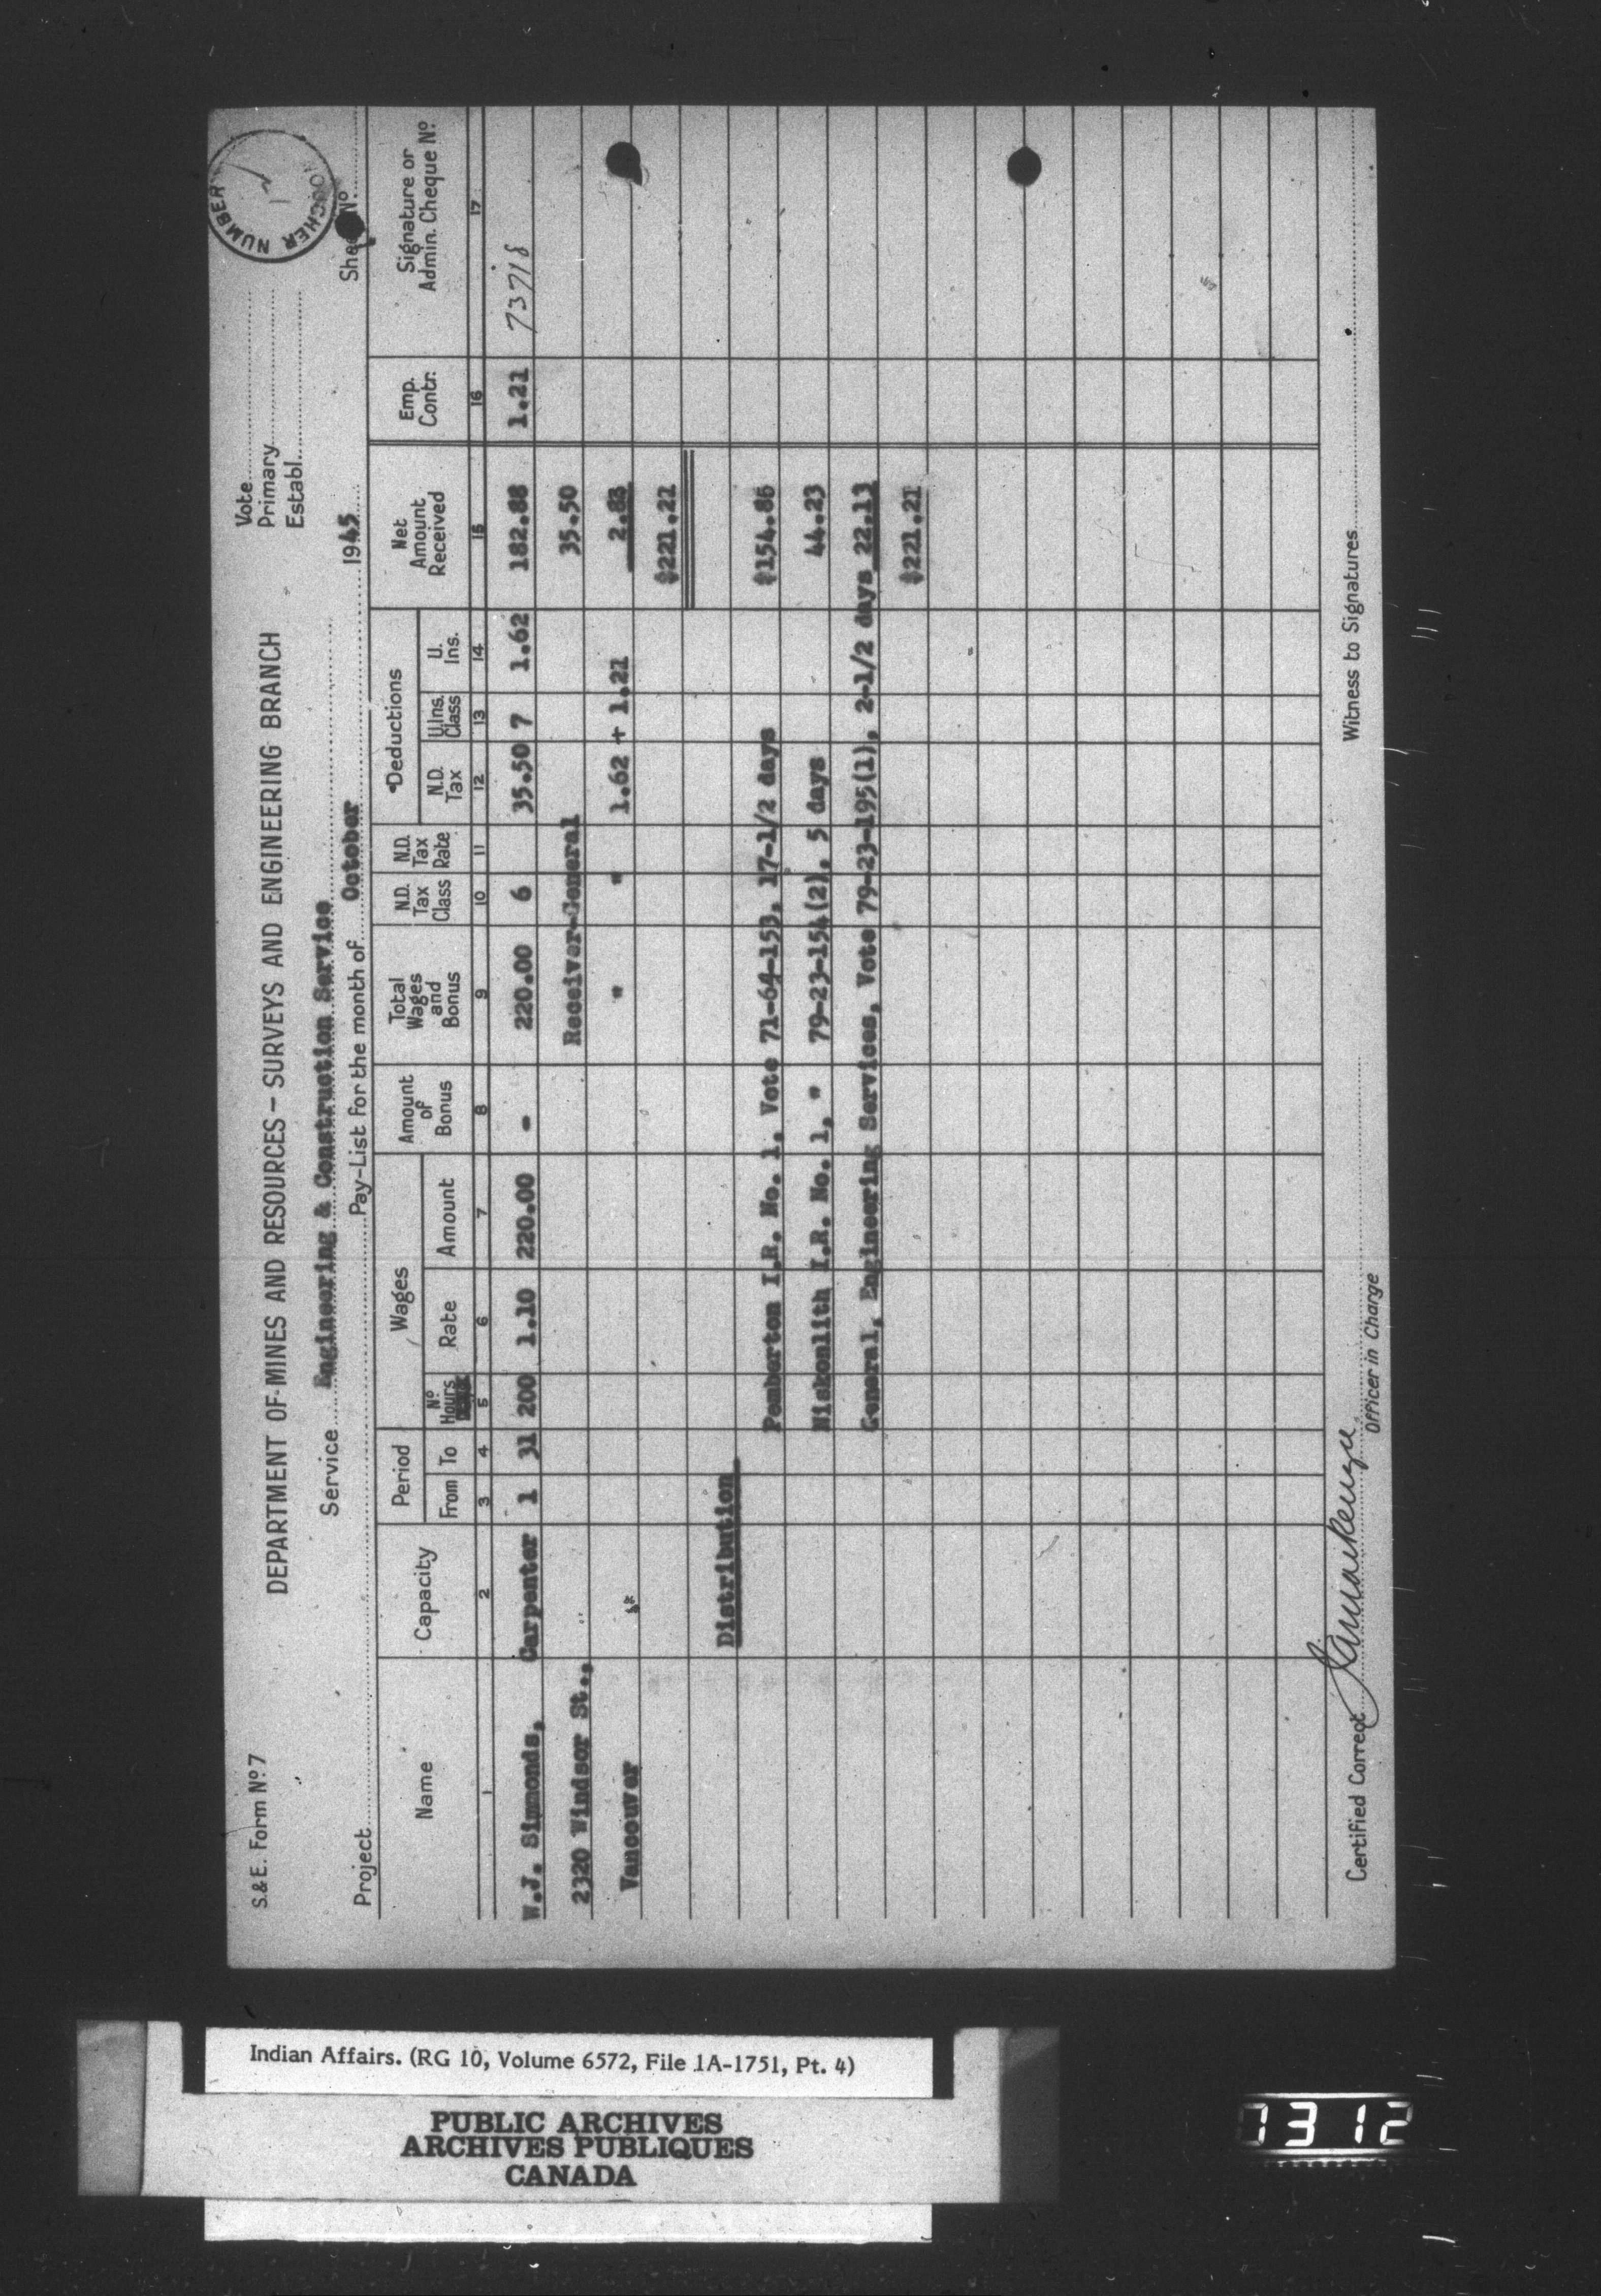 S.& E. Form Nº 7
Vote
DEPARTMENT OF MINES AND RESOURCES - SURVEYS AND ENGINEERING BRANCH
Primary
Service Engineering & Construction Service
Establ.
VOUCHER NUMBER
Project
Pay-List for the month of October 1945
Sheet Nº 1
Name
Capacity
Period
Wages
Amount of Bonus
Total Wages and Bonus
N.D. Tax Class
N.D. Tax Rate
Deductions
Net Amount Received
Emp. Contr.
Signature or Admin. Cheque Nº
From To Nº Hours Rate Amount N.D. Tax U.Ins. Class U. Ins.
1 2 3 4 5 6 7 8 9 10 11 12 13 14 15 16 17
W.J. Simmonds, Carpenter 1 31 200 1.10 220.00 - 220.00 6 35.50 7 1.62 182.88 1.21 73718
2320 Windsor St., Receiver-General 35.50
Vancouver " " 1.62 + 1.21 2.83
$221.21
Distribution
Pemberton I.R. No. 1, Vote 71-64-153, 17-1/2 days $154.85
Niskonlith I.R. No. 1, " 79-23-154(2), 5 days 44.23
General, Engineering Services, Vote 79-23-195(1), 2-1/2 days 22.13
$221.21
Certified Correct
Officer in Charge
Witness to Signatures
Indian Affairs. (RG 10, Volume 6572, File 1A-1751, Pt. 4)
PUBLIC ARCHIVES
ARCHIVES PUBLIQUES
CANADA
7312